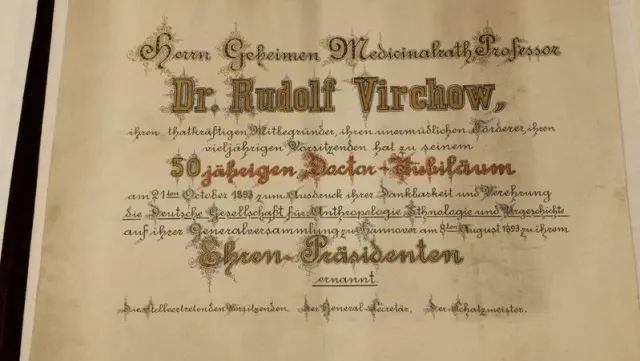 Herrn Geheimen Medicinalrath Professor
Dr. Rudolf Virchow,
ihren thatkräftigen Mitbegründer, ihren unermüdlichen Förderer, ihren
vieljährigen Vorsitzenden hat zu seinem
50 jährigen Doctor-Jubiläum
am 21ten October 1893 zum Ausdruck ihrer Dankbarkeit und Verehrung
die Deutsche Gesellschaft für Anthropologie Ethnologie und Urgeschichte
auf ihrer Generalversammlung zu Hannover am 8ten August 1893 zu ihrem
Ehren-Präsidenten
ernannt.
Die stellvertretenden Vorsitzenden. Der General-Secretär. Der Schatzmeister.